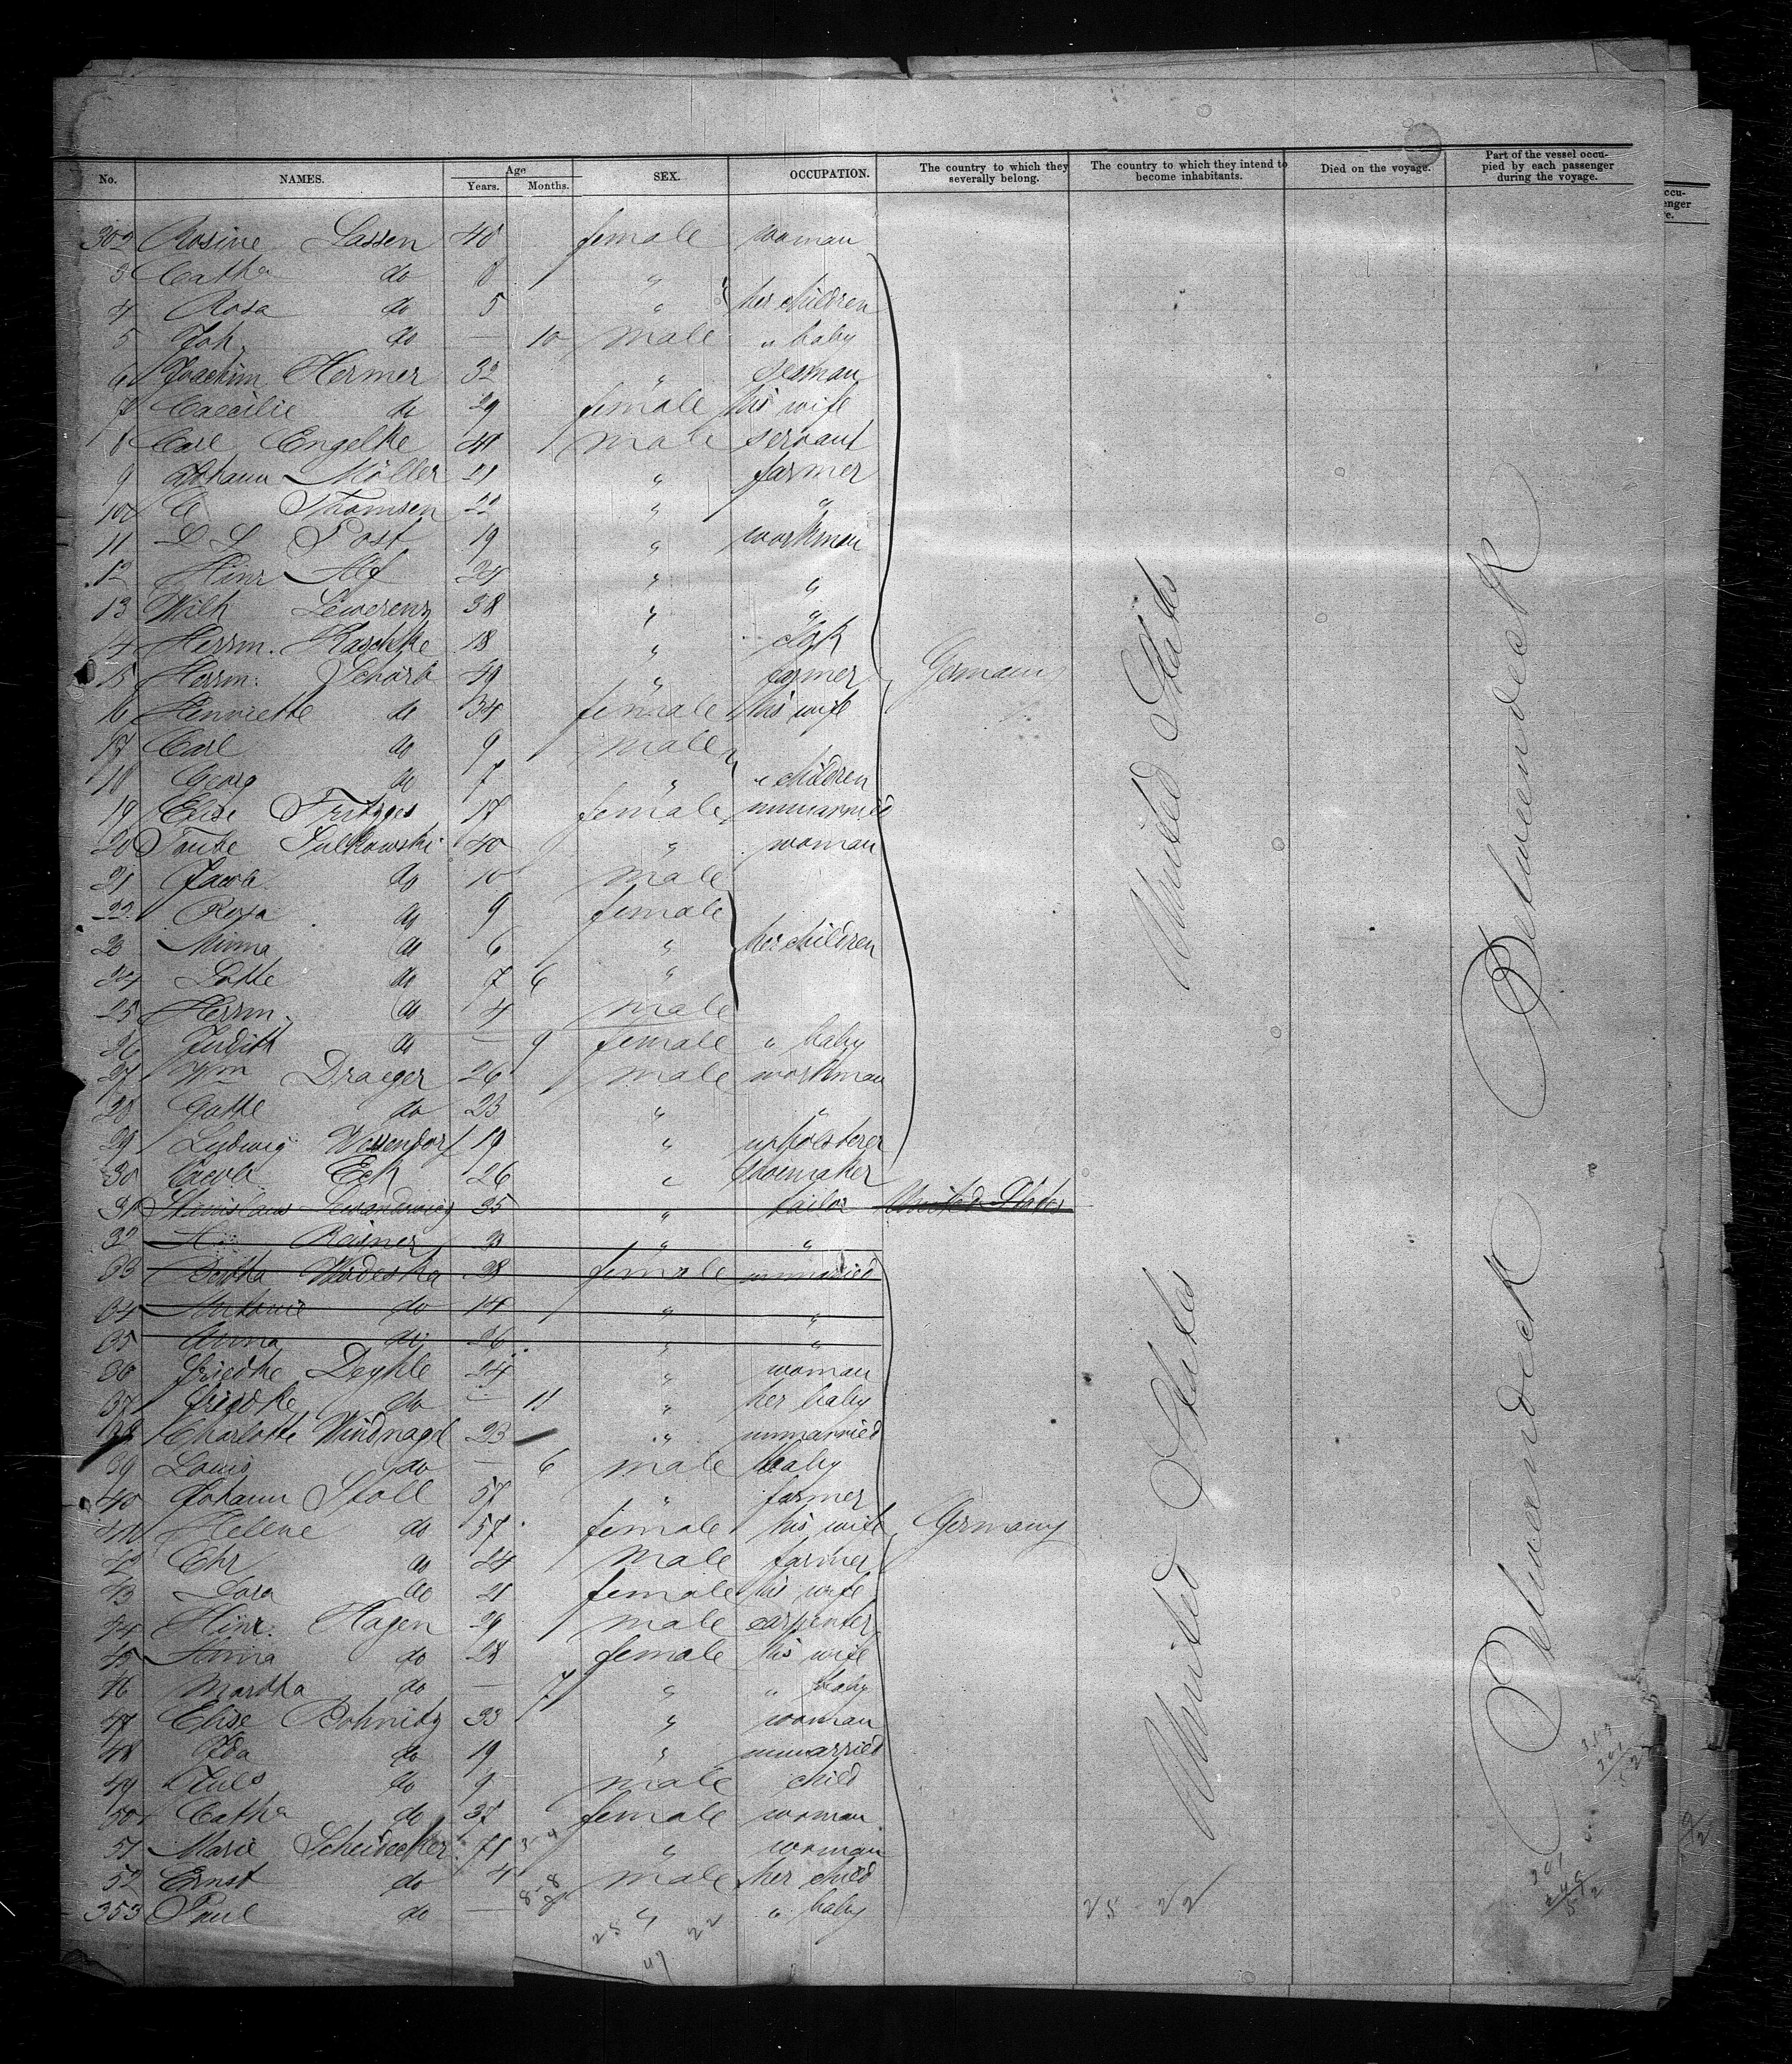 No. NAMES. Age Years. Months. SEX. OCCUPATION. The country to which they severally belong. The country to which they intend to become inhabitants. Died on the voyage. Part of the vessel occupied by each passenger during the voyage.
302 Rosine Lassen 40 female woman
3 Catha do 8 "
4 Rosa do 5 " her children
5 Joh. do — 10 male " baby
6 Joachim Hermer 32 " seaman
7 Caecilie do 29 female his wife
8 Carl Engelke 41 male servant
9 Johann Möller 21 " farmer
10 C Thomsen 22 " "
11 D S Post 19 " workman
12 Hinr Alf 24 " "
13 Wilh Lewerenz 38 " "
14 Herrm. Raschke 18 " clerk
15 Herrm. Schorb 49 " farmer Germany
16 Henriette do 34 female his wife
17 Carl do 9 male
18 Georg do 7 " " children
19 Elise Fritzges 17 female unmarried
20 Taube Sulkowski 40 " woman
21 Jacob do 10 male
22 Rosa do 9 female
23 Minna do 6 " her children
24 Lotte do 7 6 "
25 Herrm. do 4 male
26 Judith do — 9 female " baby
27 Wm Draeger 26 male workman
28 do 23 " "
29 Ludwig Wessendorf 19 " upholsterer
30 Jacob Eck 26 " shoemaker
31 Stanislaus 35 " tailor United States
32 Reisner " "
33 38 female unmarried
34 Antonie do 14 " "
35 Anna do 26 " "
36 Friedke Deyhle 24 " woman
37 Friedke do — 11 " her baby
38 Charlotte Windnagel 23 " unmarried
39 Louis do — 6 male baby
40 Johann Stoll 57 " farmer
41 Helene do 57 female his wife Germany
42 Chr do 24 male farmer
43 Dora do 21 female his wife
44 Hinr. Hagen 29 male carpenter
45 Anna do 28 female his wife
46 Martha do — 7 " " baby
47 Elise Bohnitz 33 " woman
48 Ida do 19 " unmarried
49 Juls do 9 male child
50 Catha do 37 female woman
51 Marie Scheidecker 71 " woman
52 Ernst do 4 male her child
353 Paul do — " " baby
United States
United States
Betweendeck
Betweendeck
25 22
47
25 - 22